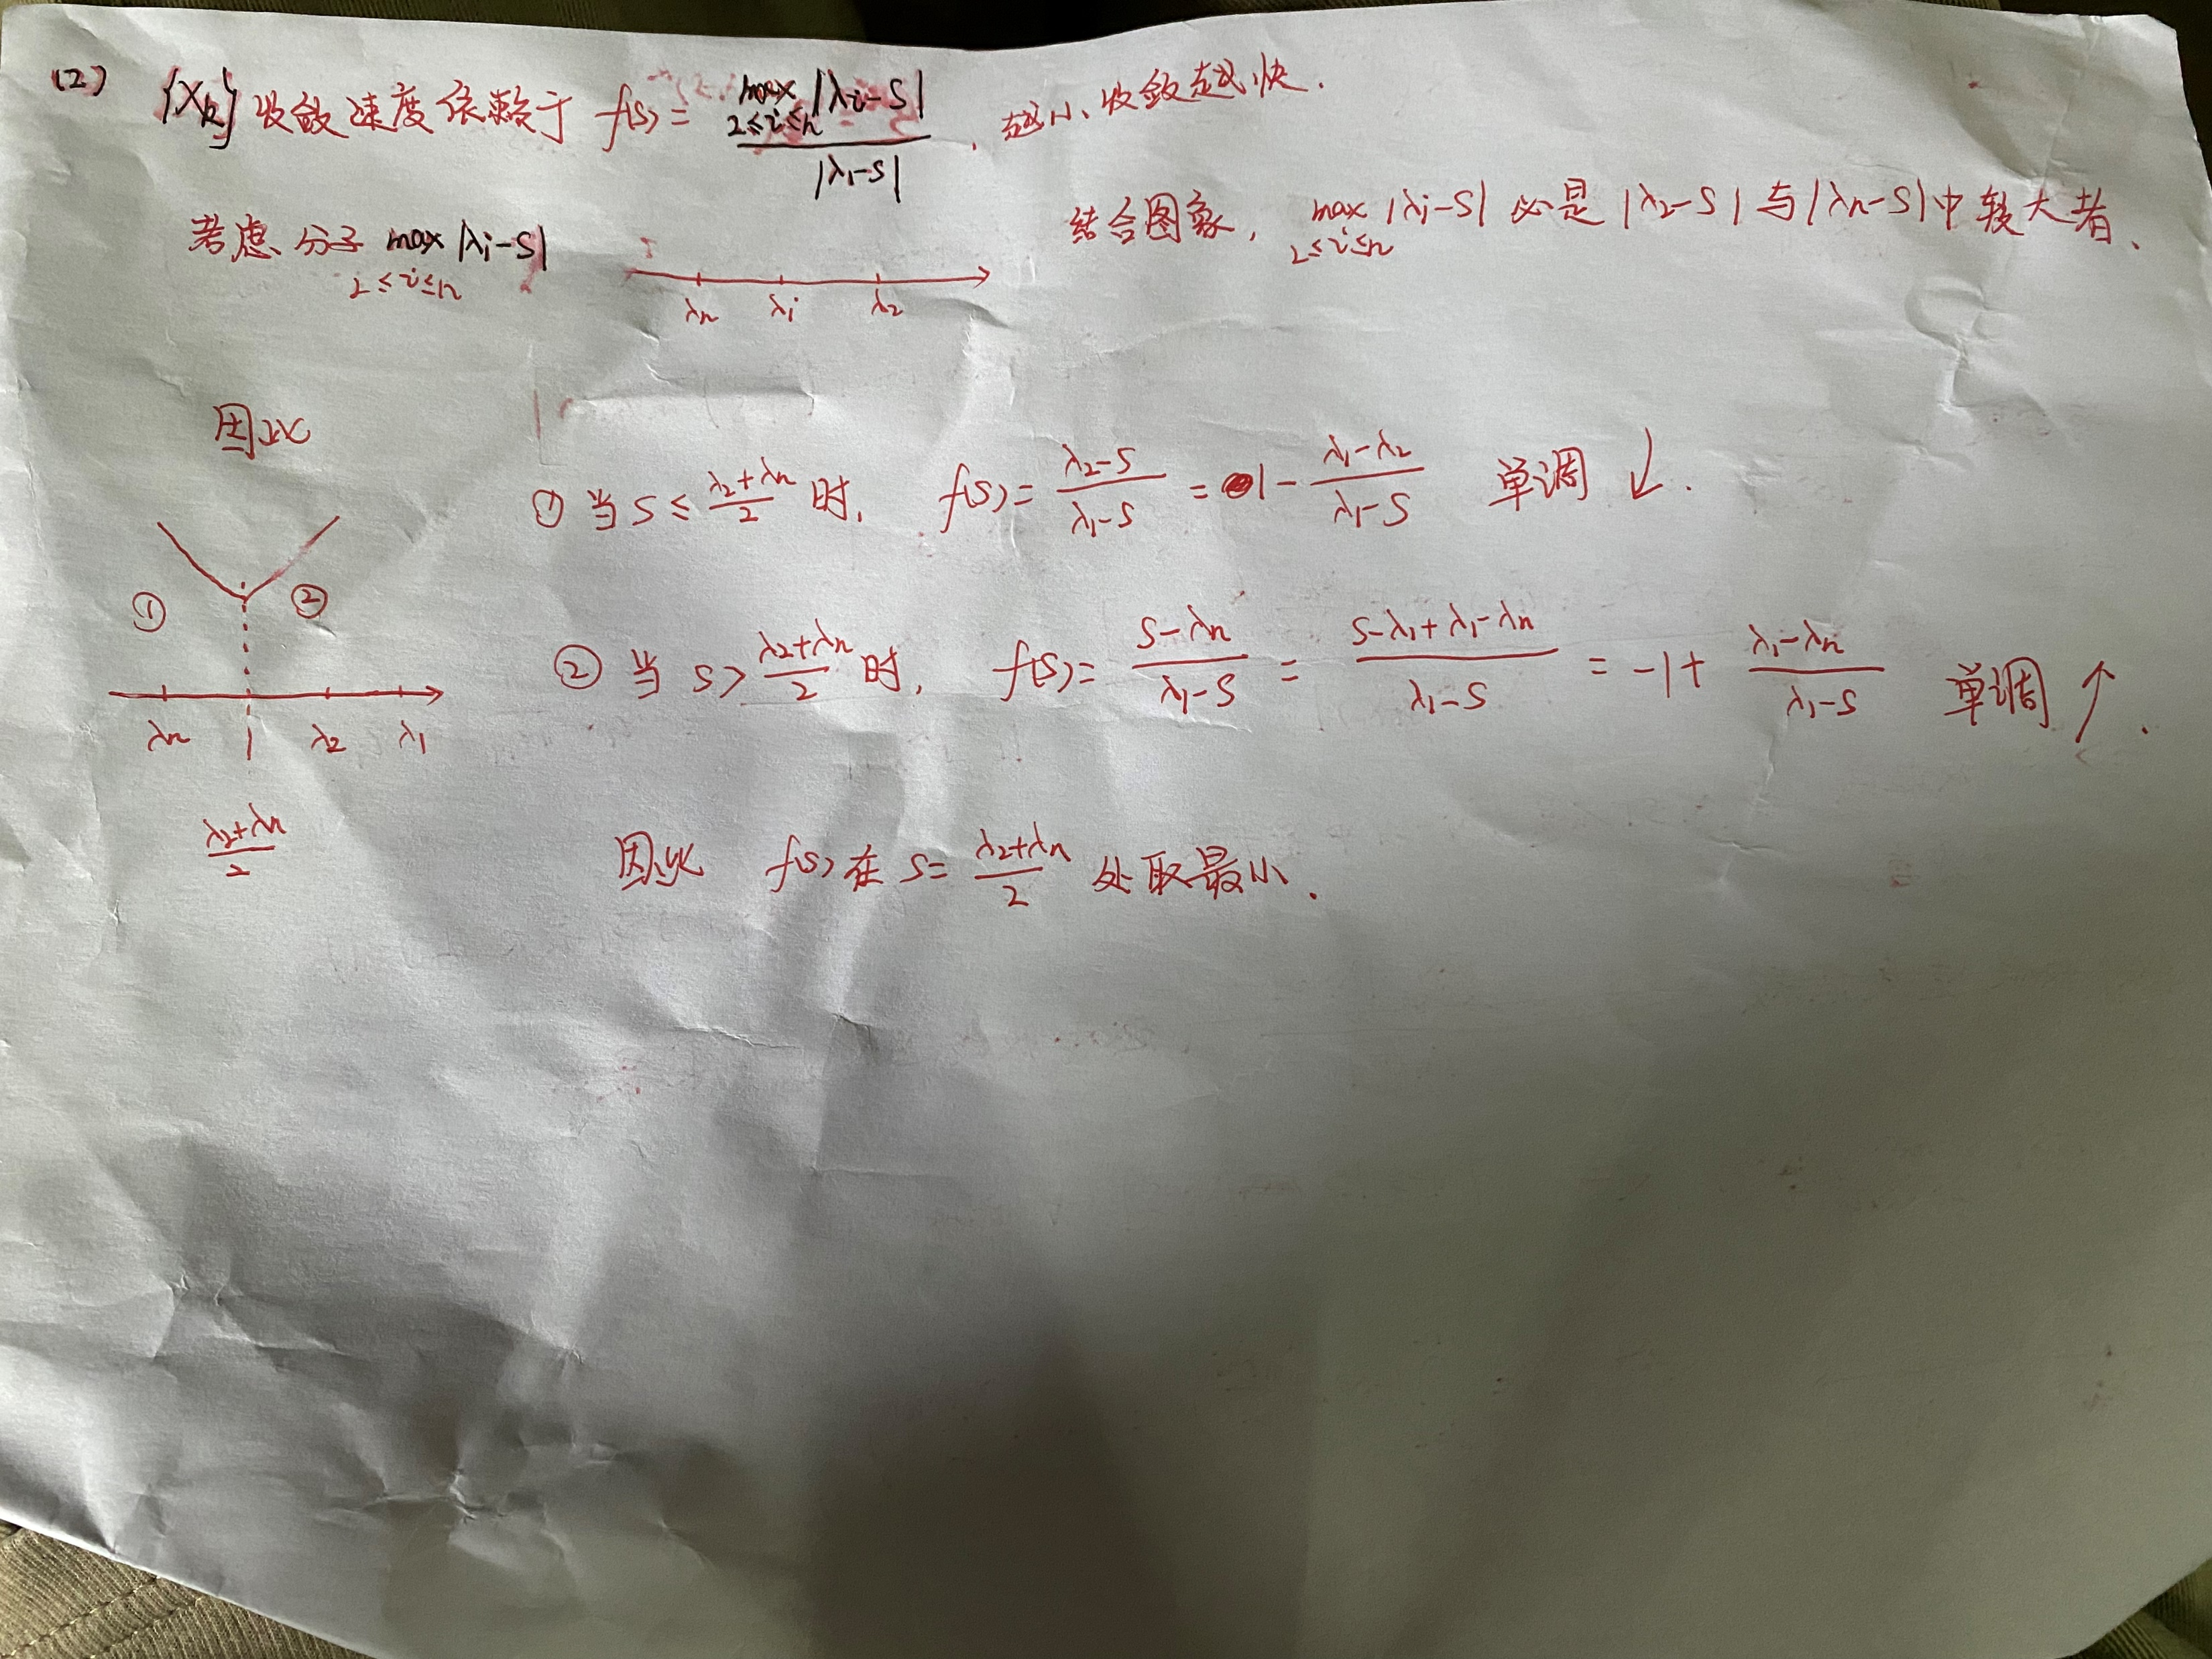 (2) {X_k} 收敛速度依赖于 f(s) = max_{2≤i≤n} |λi-S| / |λ1-S| , 越小、收敛越快.
考虑分子 max_{2≤i≤n} |λi-S|
λn λi λ2
结合图象, max_{2≤i≤n} |λi-S| 必是 |λ2-S| 与 |λn-S| 中较大者、
因此
① 当 S ≤ (λ2+λn)/2 时, f(s) = (λ2-S)/(λ1-S) = 1 - (λ1-λ2)/(λ1-S) 单调 ↓.
① ②
② 当 S > (λ2+λn)/2 时, f(s) = (S-λn)/(λ1-S) = (S-λ1+λ1-λn)/(λ1-S) = -1 + (λ1-λn)/(λ1-S) 单调 ↑.
λn λ2 λ1
(λ2+λn)/2
因此 f(s) 在 S = (λ2+λn)/2 处取最小.